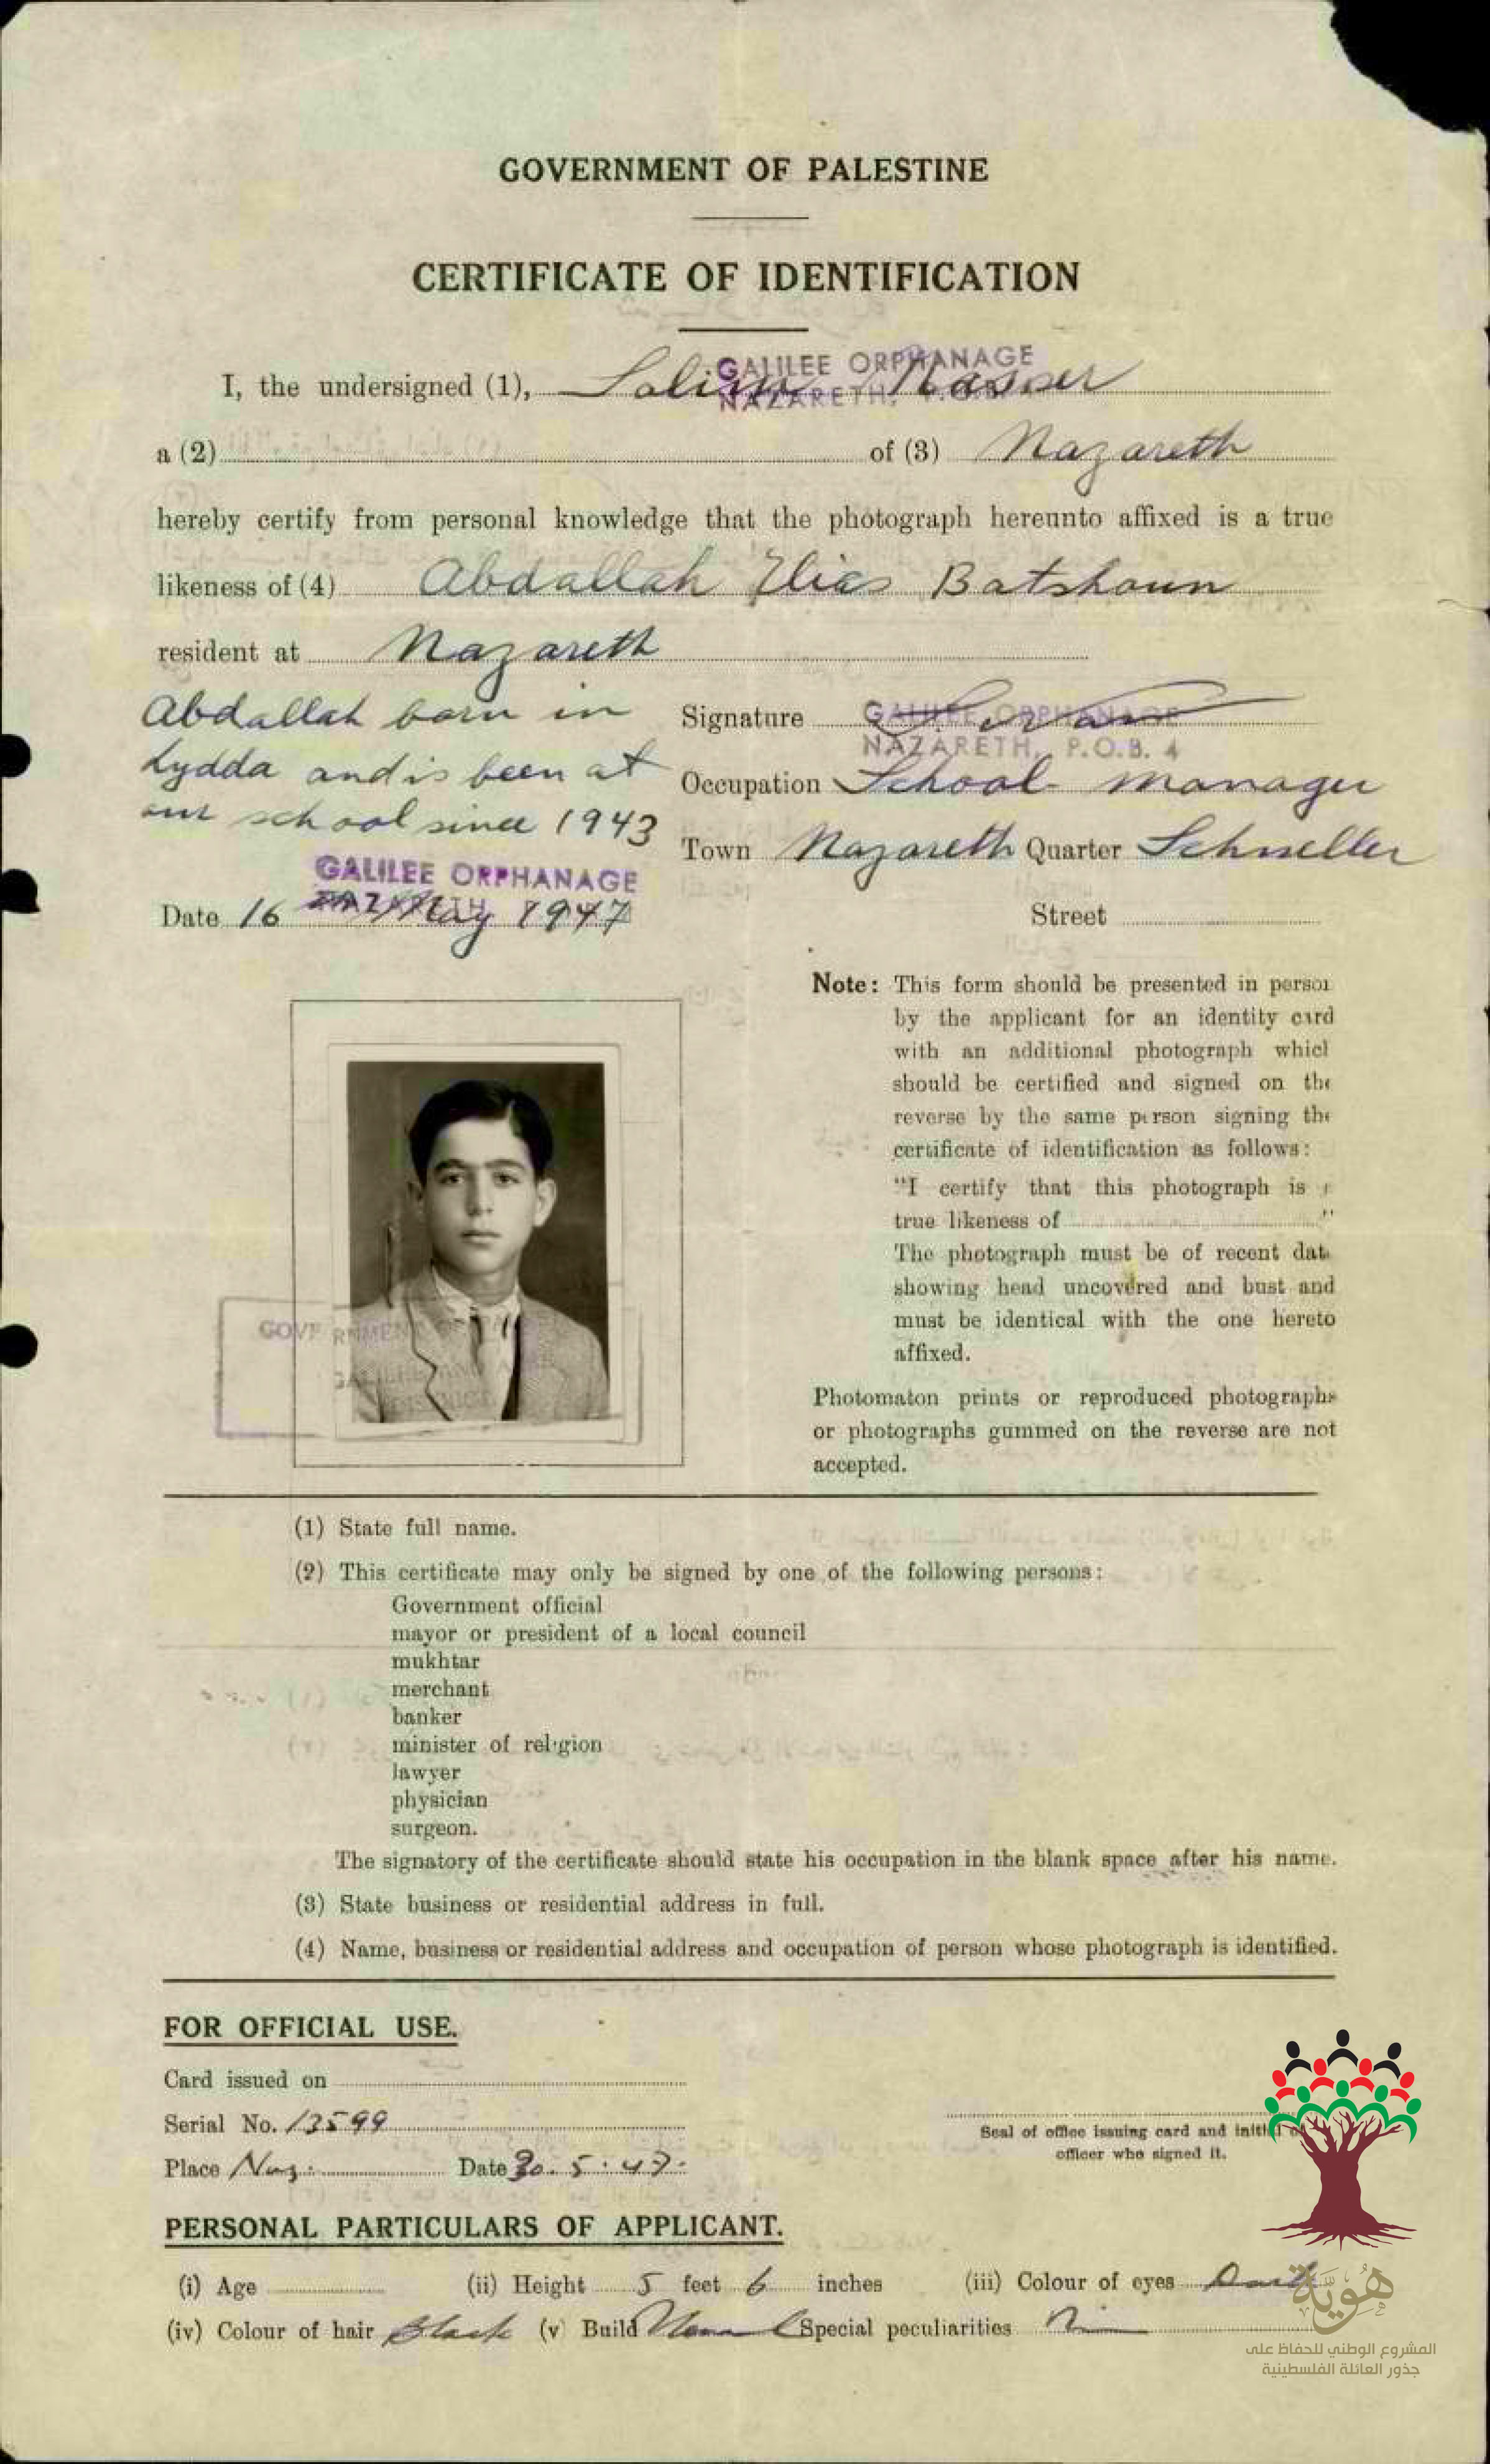 GOVERNMENT OF PALESTINE
CERTIFICATE OF IDENTIFICATION
GALILEE ORPHANAGE
NAZARETH, P.O.B.
I, the undersigned (1), Salim Nasser
a (2) of (3) Nazareth
hereby certify from personal knowledge that the photograph hereunto affixed is a true
likeness of (4) Abdallah Elias Batshoun
resident at Nazareth
Abdallah born in
Lydda and is been at
our school since 1943
Signature
GALILEE ORPHANAGE
NAZARETH, P.O.B. 4
Occupation School manager
Town Nazareth Quarter Schneller
GALILEE ORPHANAGE
NAZARETH
Date 16 May 1947
Street
Note: This form should be presented in person
by the applicant for an identity card
with an additional photograph which
should be certified and signed on the
reverse by the same person signing the
certificate of identification as follows:
"I certify that this photograph is
true likeness of "
The photograph must be of recent date
showing head uncovered and bust and
must be identical with the one hereto
affixed.
Photomaton prints or reproduced photographs
or photographs gummed on the reverse are not
accepted.
GOVERNMENT OF
(1) State full name.
(2) This certificate may only be signed by one of the following persons:
Government official
mayor or president of a local council
mukhtar
merchant
banker
minister of religion
lawyer
physician
surgeon.
The signatory of the certificate should state his occupation in the blank space after his name.
(3) State business or residential address in full.
(4) Name, business or residential address and occupation of person whose photograph is identified.
FOR OFFICIAL USE.
Card issued on
Serial No. 13599
Place Naz. Date 30.5.47.
Seal of office issuing card and initial of
officer who signed it.
PERSONAL PARTICULARS OF APPLICANT.
(i) Age (ii) Height 5 feet 6 inches (iii) Colour of eyes Dark
(iv) Colour of hair Black (v) Build Normal Special peculiarities
هوية
المشروع الوطني للحفاظ على
جذور العائلة الفلسطينية